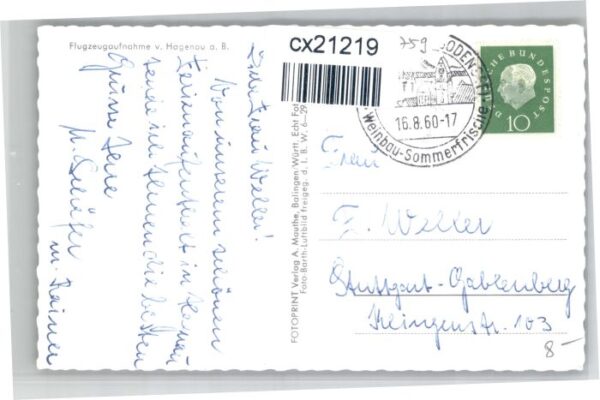 Flugzeugaufnahme v. Hagenau a. B.
Liebe Frau Weller!
Von unserem schönen
Ferienaufenthalt in Hagnau
sende ich Ihnen die besten
Grüsse Ihre
M. Schäfer
u. Rainer
FOTOPRINT Verlag A. Mauthe, Balingen/Württ. Echt Foto
Foto-Barth-Luftbild freigeg. d. I. B. W. 6-29
cx21219
759
BODENSEE
16.8.60-17
Weinbau-Sommerfrische
DEUTSCHE BUNDESPOST
10
Frau
F. Weller
Stuttgart-Gablenberg
Klingenstr. 103
8-